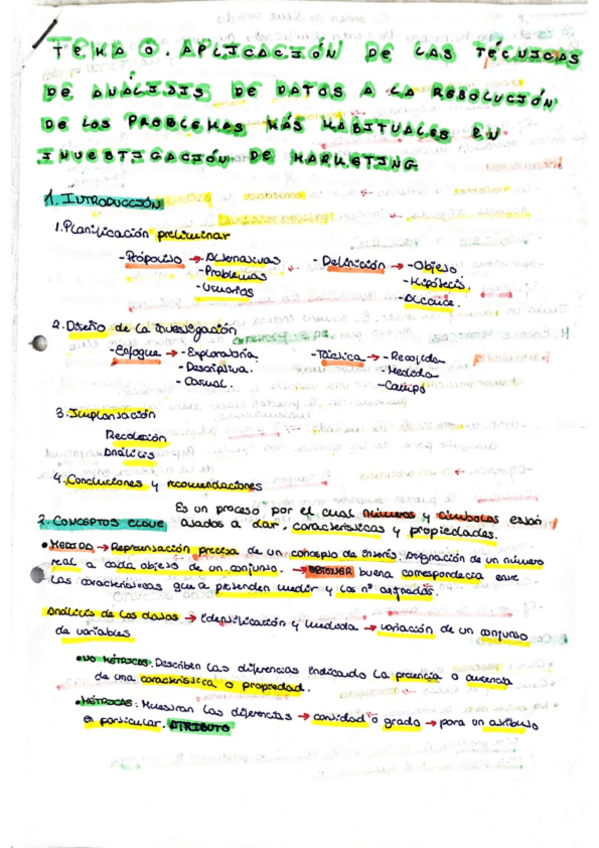 TEMA 0. APLICACIÓN DE LAS TÉCNICAS
DE ANÁLISIS DE DATOS A LA RESOLUCIÓN
DE LOS PROBLEMAS MÁS HABITUALES EN
INVESTIGACIÓN DE MARKETING
1. INTRODUCCIÓN
1. Planificación preliminar
- Própósito → Alternativas - Definición → - Objeto
- Problemas - Hipótesis.
- Usuarios - Alcance.
2. Diseño de la investigación
- Enfoque → - Exploratoria. - Táctica → - Recogida
- Descriptiva. - Medida
- Casual. - Campo
3. Implantación
Recolección
Análisis
4. Conclusiones y recomendaciones
Es un proceso por el cual números y símbolos están
2. CONCEPTOS CLAVE ajados a dar, características y propiedades.
• MEDIDA → Representación precisa de un concepto de interés. Asignación de un número
real a cada objeto de un conjunto. → OBTENER buena correspondecia entre
las características que se pretenden medir y los nº asignados.
Análisis de los datos → identificación y medida → variación de un conjunto
de variables
• NO MÉTRICAS. Describen las diferencias indicando la presencia o ausencia
de una característica o propiedad.
• MÉTRICAS: Muestran las diferencias → cantidad o grado → para un atributo
en particular. ATRIBUTO